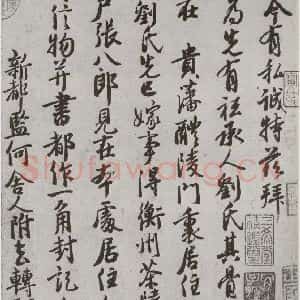 今有私誠特茲拜
為先有祖承人劉氏其骨
在貴藩醴陵門裏居住
劉氏先已嫁事得衡州茶陵
戶張八郎見在本處居住
信物并書都作一角封記
新都監何舍人附去轉
Shufawang.Cn